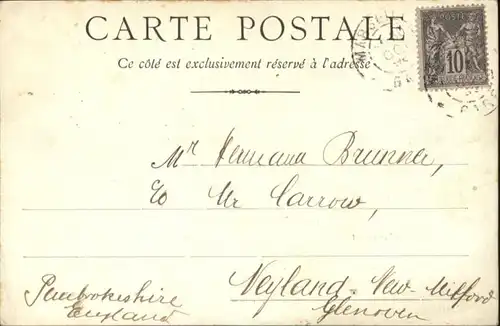 CARTE POSTALE
Ce côté est exclusivement réservé à l'adresse
POSTE
10
Mr Hermann Brunner,
Mr Carrow,
Neyland-New-Milford
Pembrokeshire
England